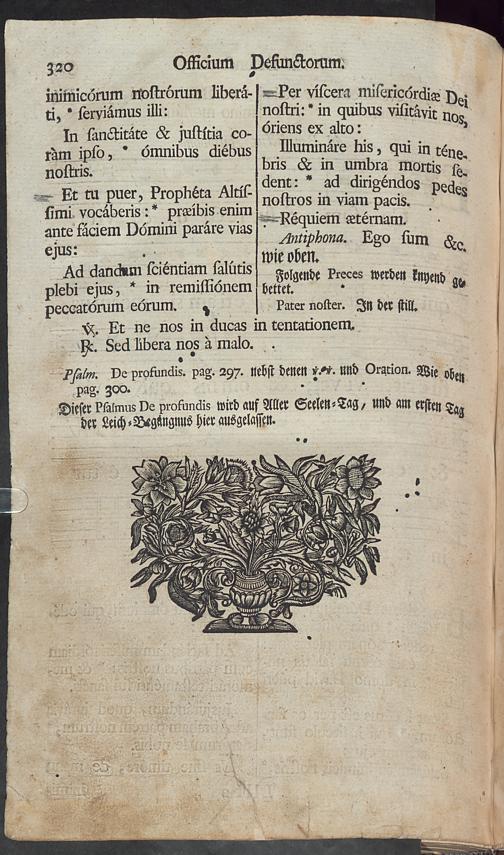 320 Officium Defunctorum.
inimicórum noſtrórum liberá-
ti, * ſerviámus illi:
In ſanctitáte & juſtítia co-
ràm ipſo, * ómnibus diébus
noſtris.
Et tu puer, Prophéta Altíſ-
ſimi vocáberis: * præíbis enim
ante fáciem Dómini paráre vias
ejus:
Ad dandam ſciéntiam ſalútis
plebi ejus, * in remiſſiónem
peccatórum eórum.
Per víſcera miſericórdiæ Dei
noſtri: * in quibus viſitâvit nos,
óriens ex alto:
Illumináre his, qui in téne-
bris & in umbra mortis ſe-
dent: * ad dirigéndos pedes
noſtros in viam pacis.
Réquiem ætérnam.
Antiphona. Ego ſum &c.
wie oben.
Folgende Preces werden knyend ge-
bettet.
Pater noſter. In der ſtill.
℣. Et ne nos in ducas in tentationem.
℟. Sed libera nos à malo.
Pſalm. De profundis. pag. 297. nebſt denen ℣.℣. und Oration. Wie oben
pag. 300.
Dieſer Pſalmus De profundis wird auf Aller Seelen-Tag, und am erſten Tag
der Leich-Begängnus hier ausgelaſſen.